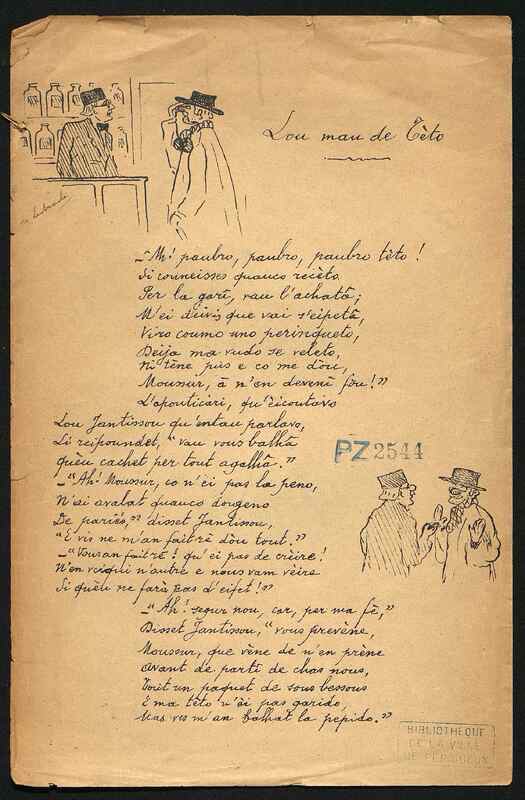 Lou mau de Tèto
—Ah! paubro, paubro, paubro tèto!
Si couneisses quauco recèto
Per la gari, vau l'achatâ;
M'ei d'eivis que vai s'eipetâ,
Viro coumo uno peringueto,
Deija ma vudo se veleto,
Ni tène pus e co me dòu,
Moussur, â n'en deveni fòu!"
L'apouticari, qu'eicoutavo
Lou Jantissou qu'entau parlavo,
Li reipoundet, "vau vous balhâ
Quèu cachet per tout agalhâ."
—"Ah! Moussur, co n'ei pas la peno,
N'ai avalat quauco dougeno
De pariés," disset Jantissou,
"E res ne m'an fait rè dòu tout."
—"Vous an fait rè! qu'ei pas de crèire!
N'en veiqui n'autre e nous vam vèire
Si quèu ne farà pas d'eifet!"
—"Ah! segur nou, car, per ma fé,"
Disset Jantissou, "vous prevène,
Moussur, que vène de n'en prène
Avant de parti de chas nous,
Tout un paquet de sous bessous
E ma tèto n'ei pas garido,
Mas res m'an balhat la pépido."
PZ 2544
BIBLIOTHEQUE
DE LA VILLE
DE PERIGUEUX